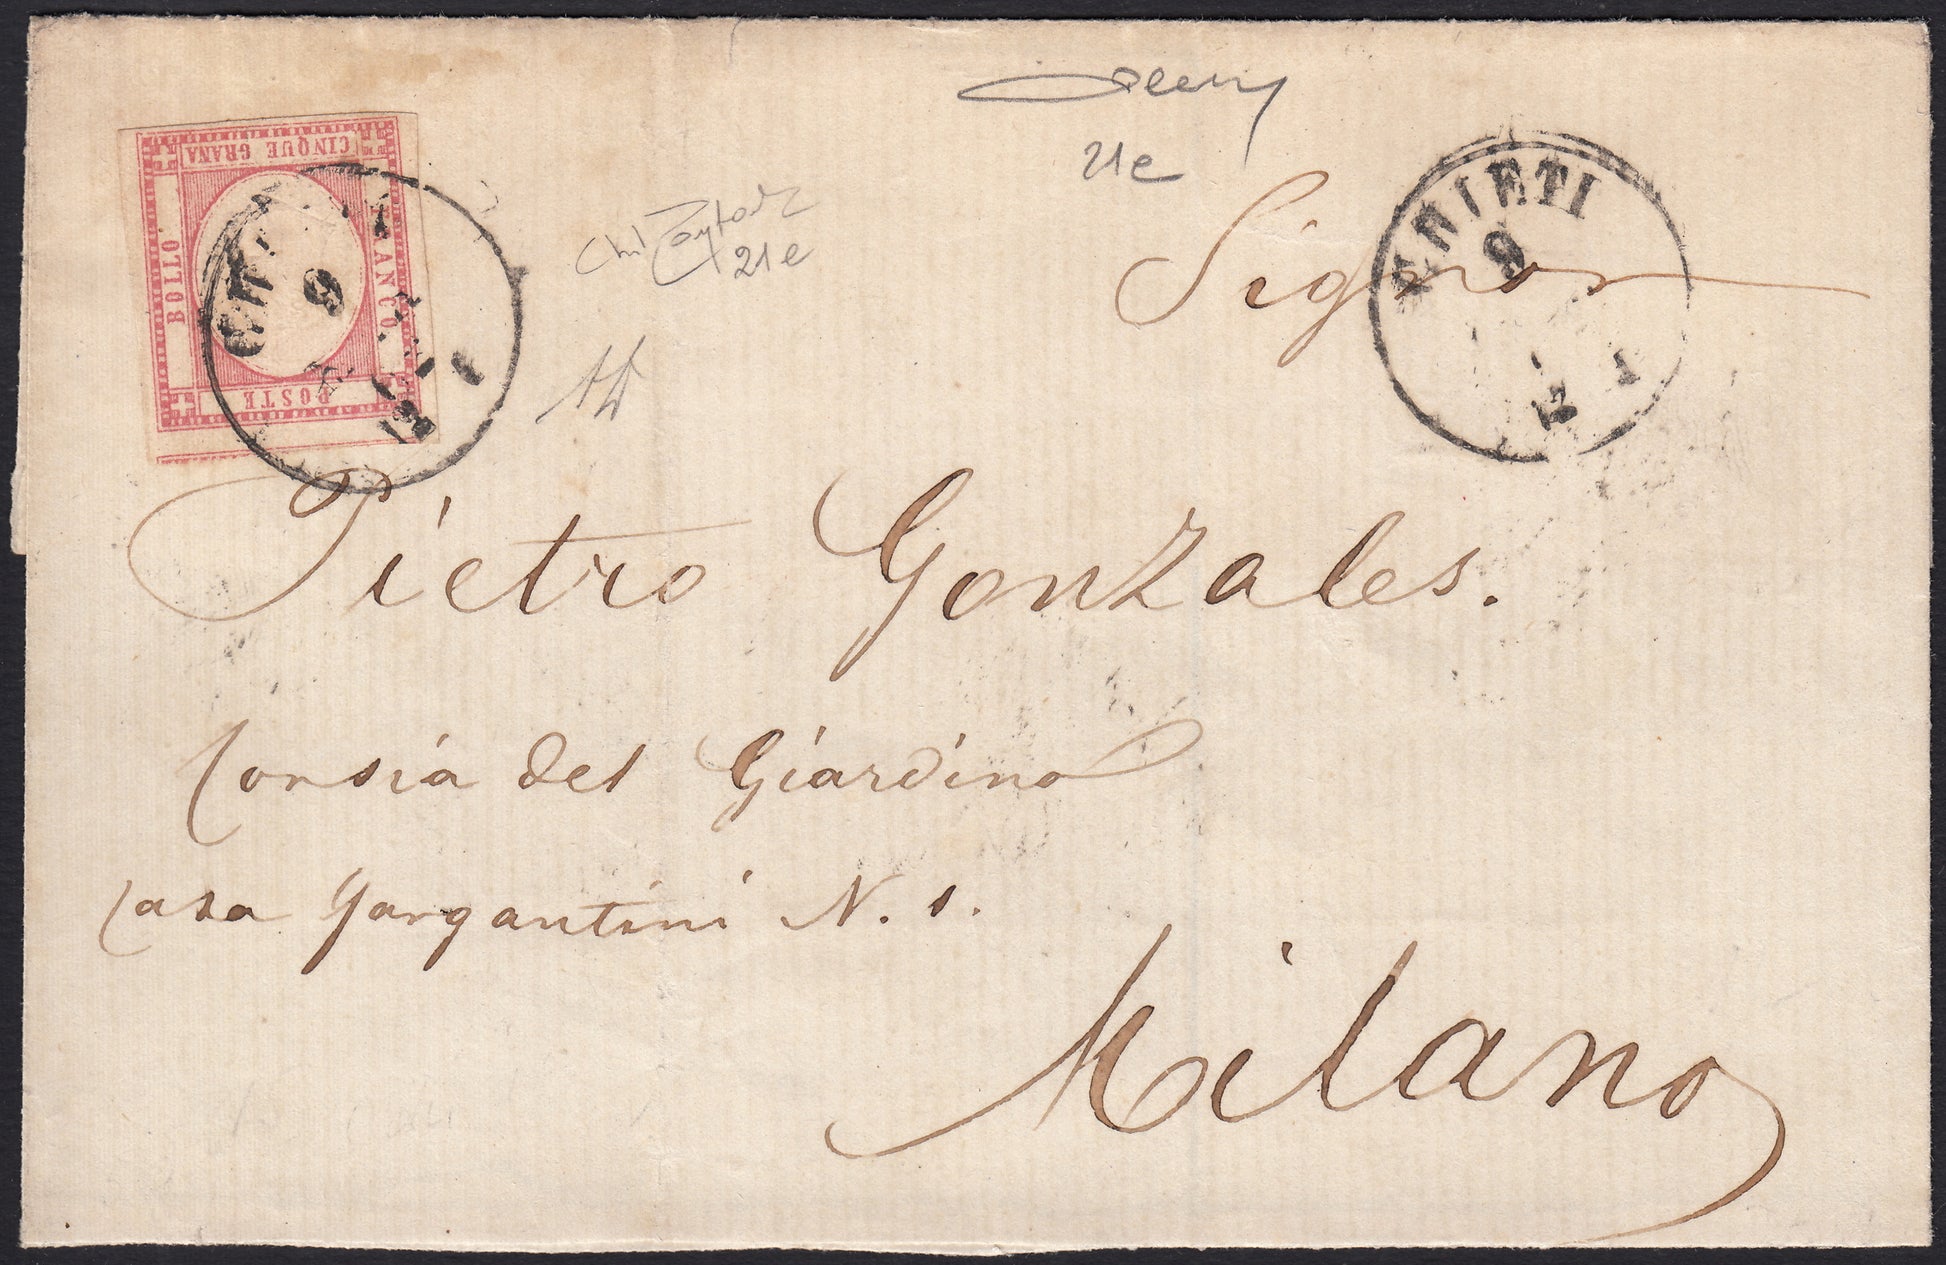 21e
21e
CINQUE GRANA
FRANCO
BOLLO
POSTE
9
CHIETI
9
Signor
Pietro Gonzales.
Corsia del Giardino
Casa Gargantini N. 1.
Milano